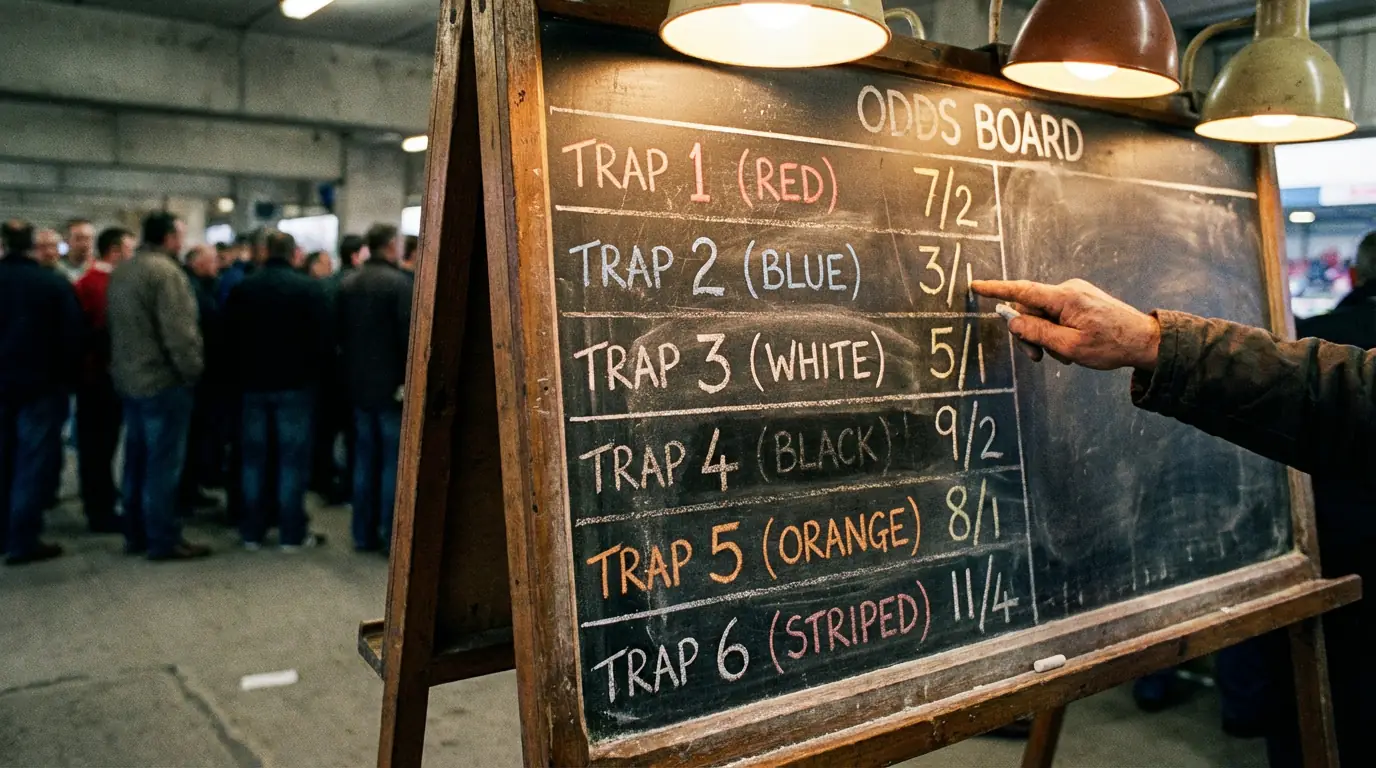 ODDS BOARD
TRAP 1 (RED) 7/2
TRAP 2 (BLUE) 3/1
TRAP 3 (WHITE) 5/1
TRAP 4 (BLACK) 9/2
TRAP 5 (ORANGE) 8/1
TRAP 6 (STRIPED) 11/4